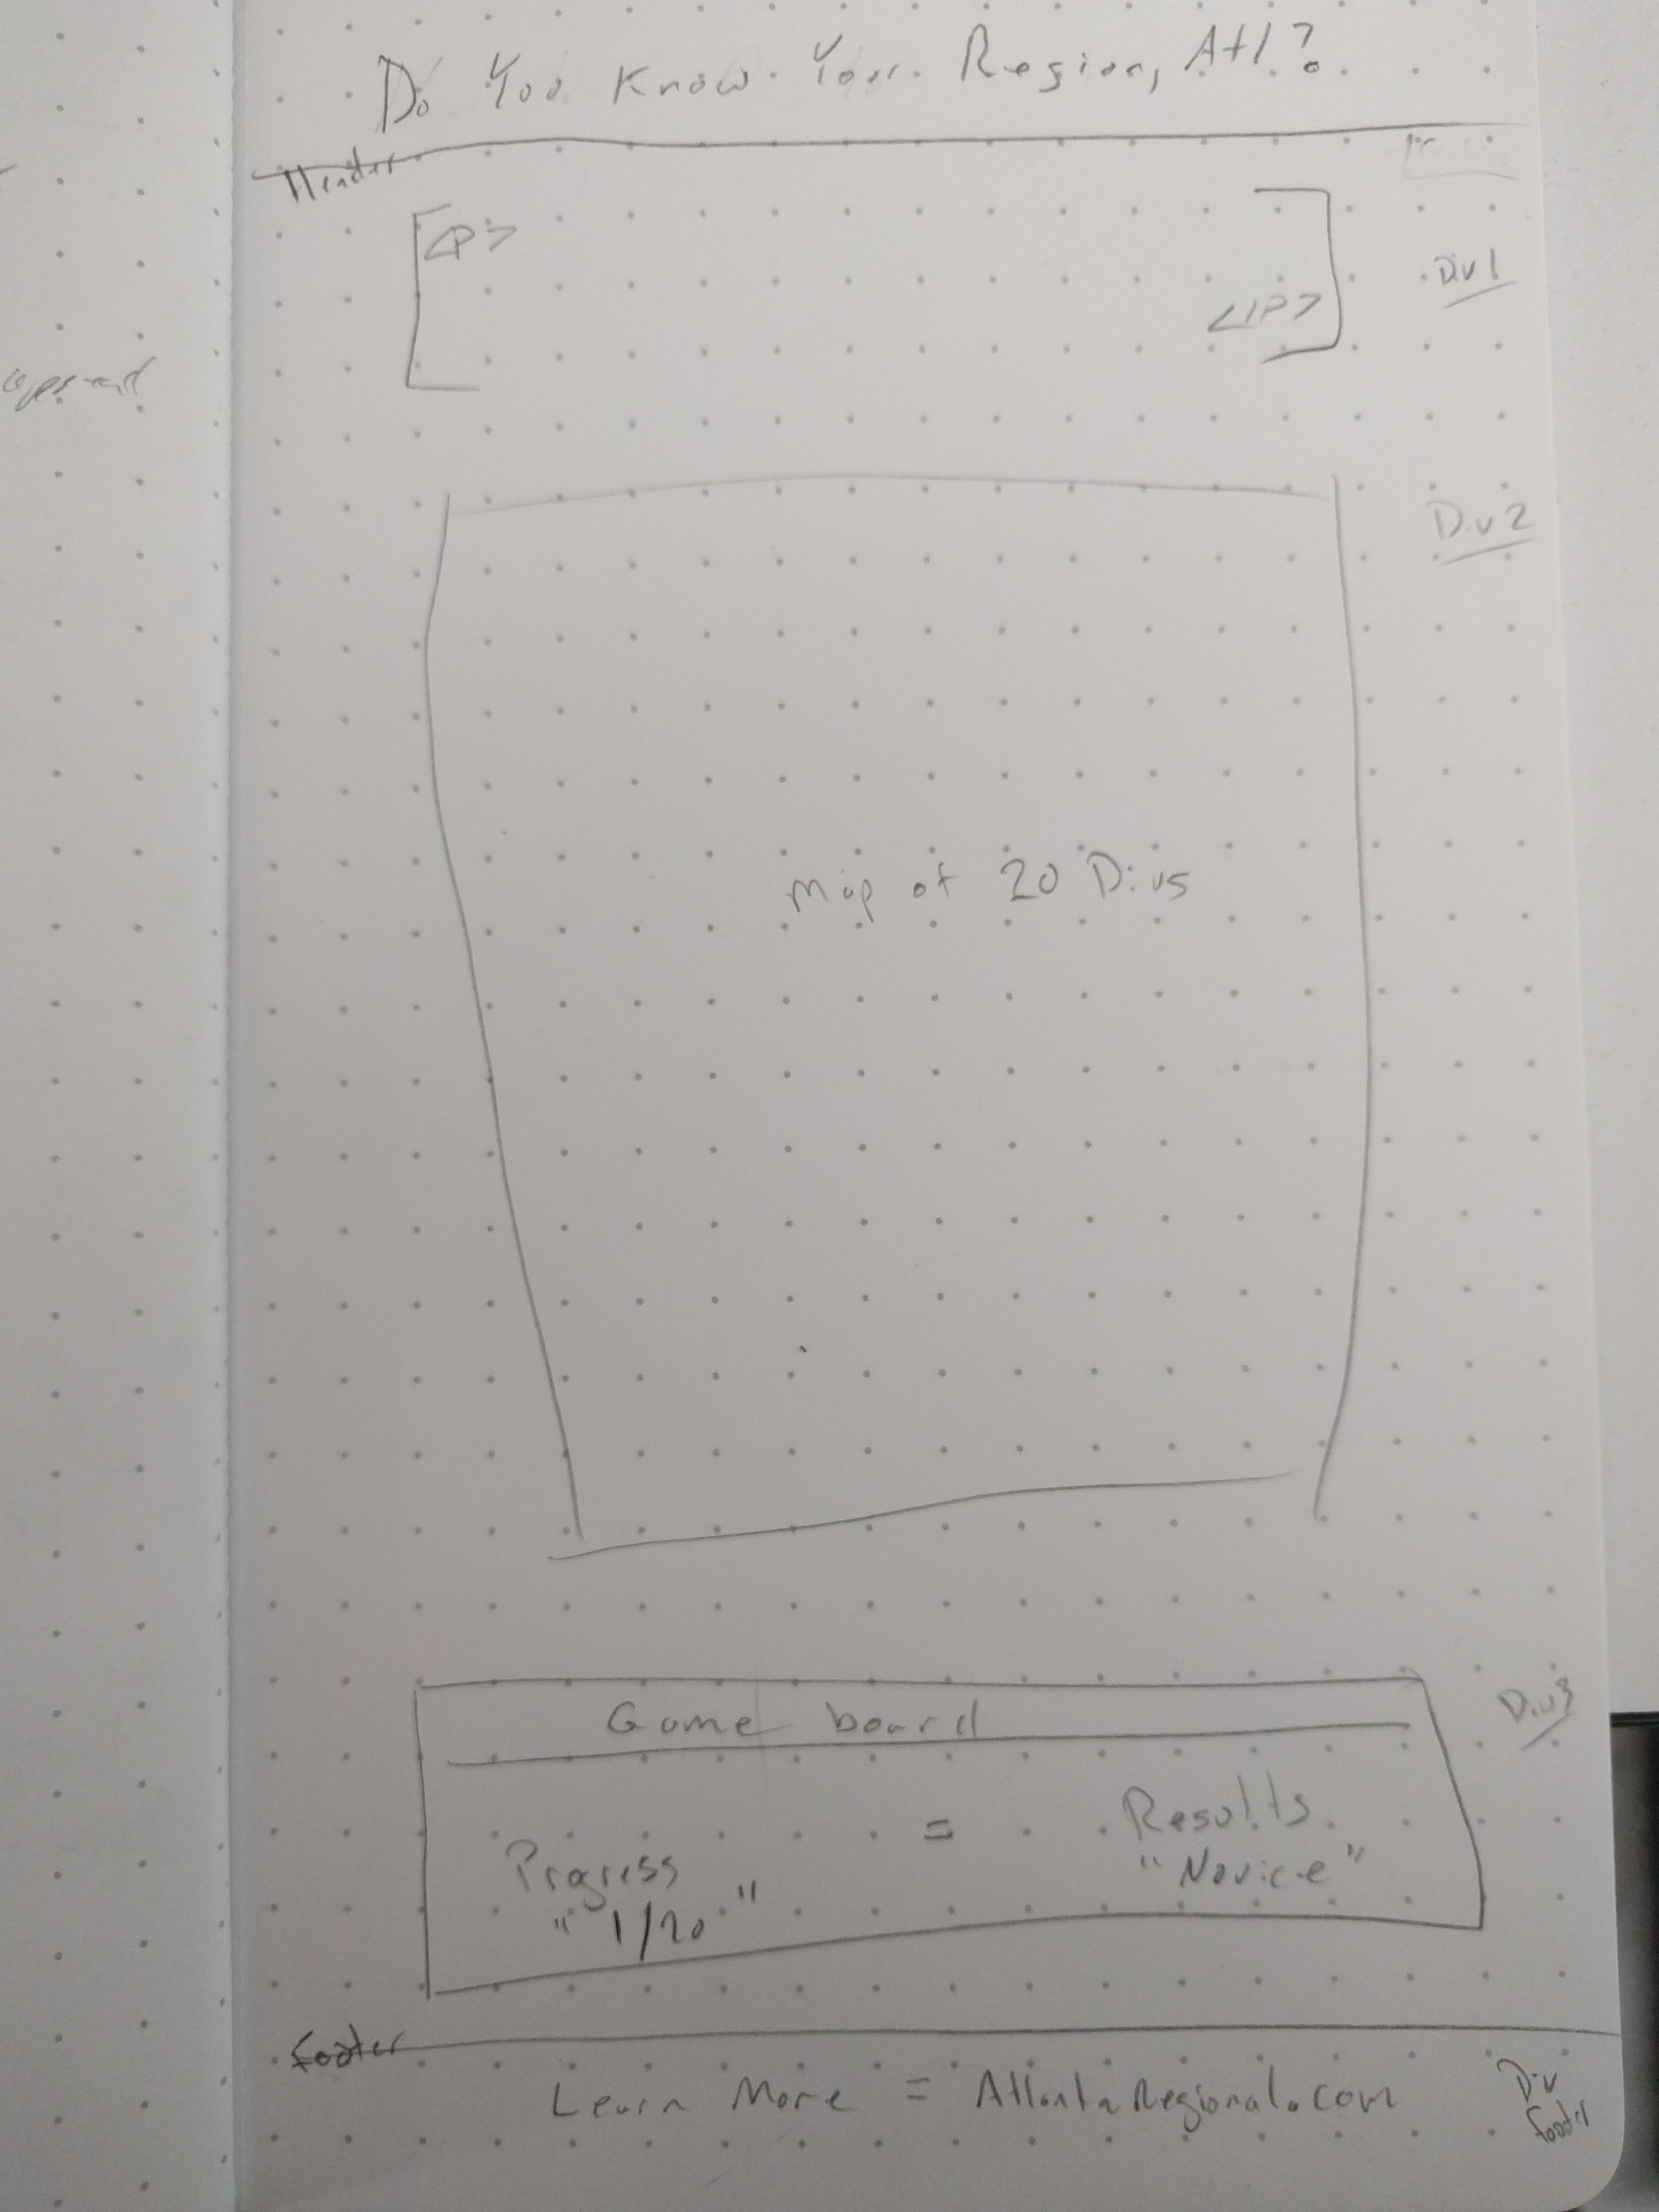 Do You Know Your Region, Atl?
Header
<P>
</P>
Div 1
Div 2
Map of 20 Divs
Div 3
Game board
Progress = Results
"1/20" "Novice"
Footer
Learn More = AtlantaRegional.com
Div
footer